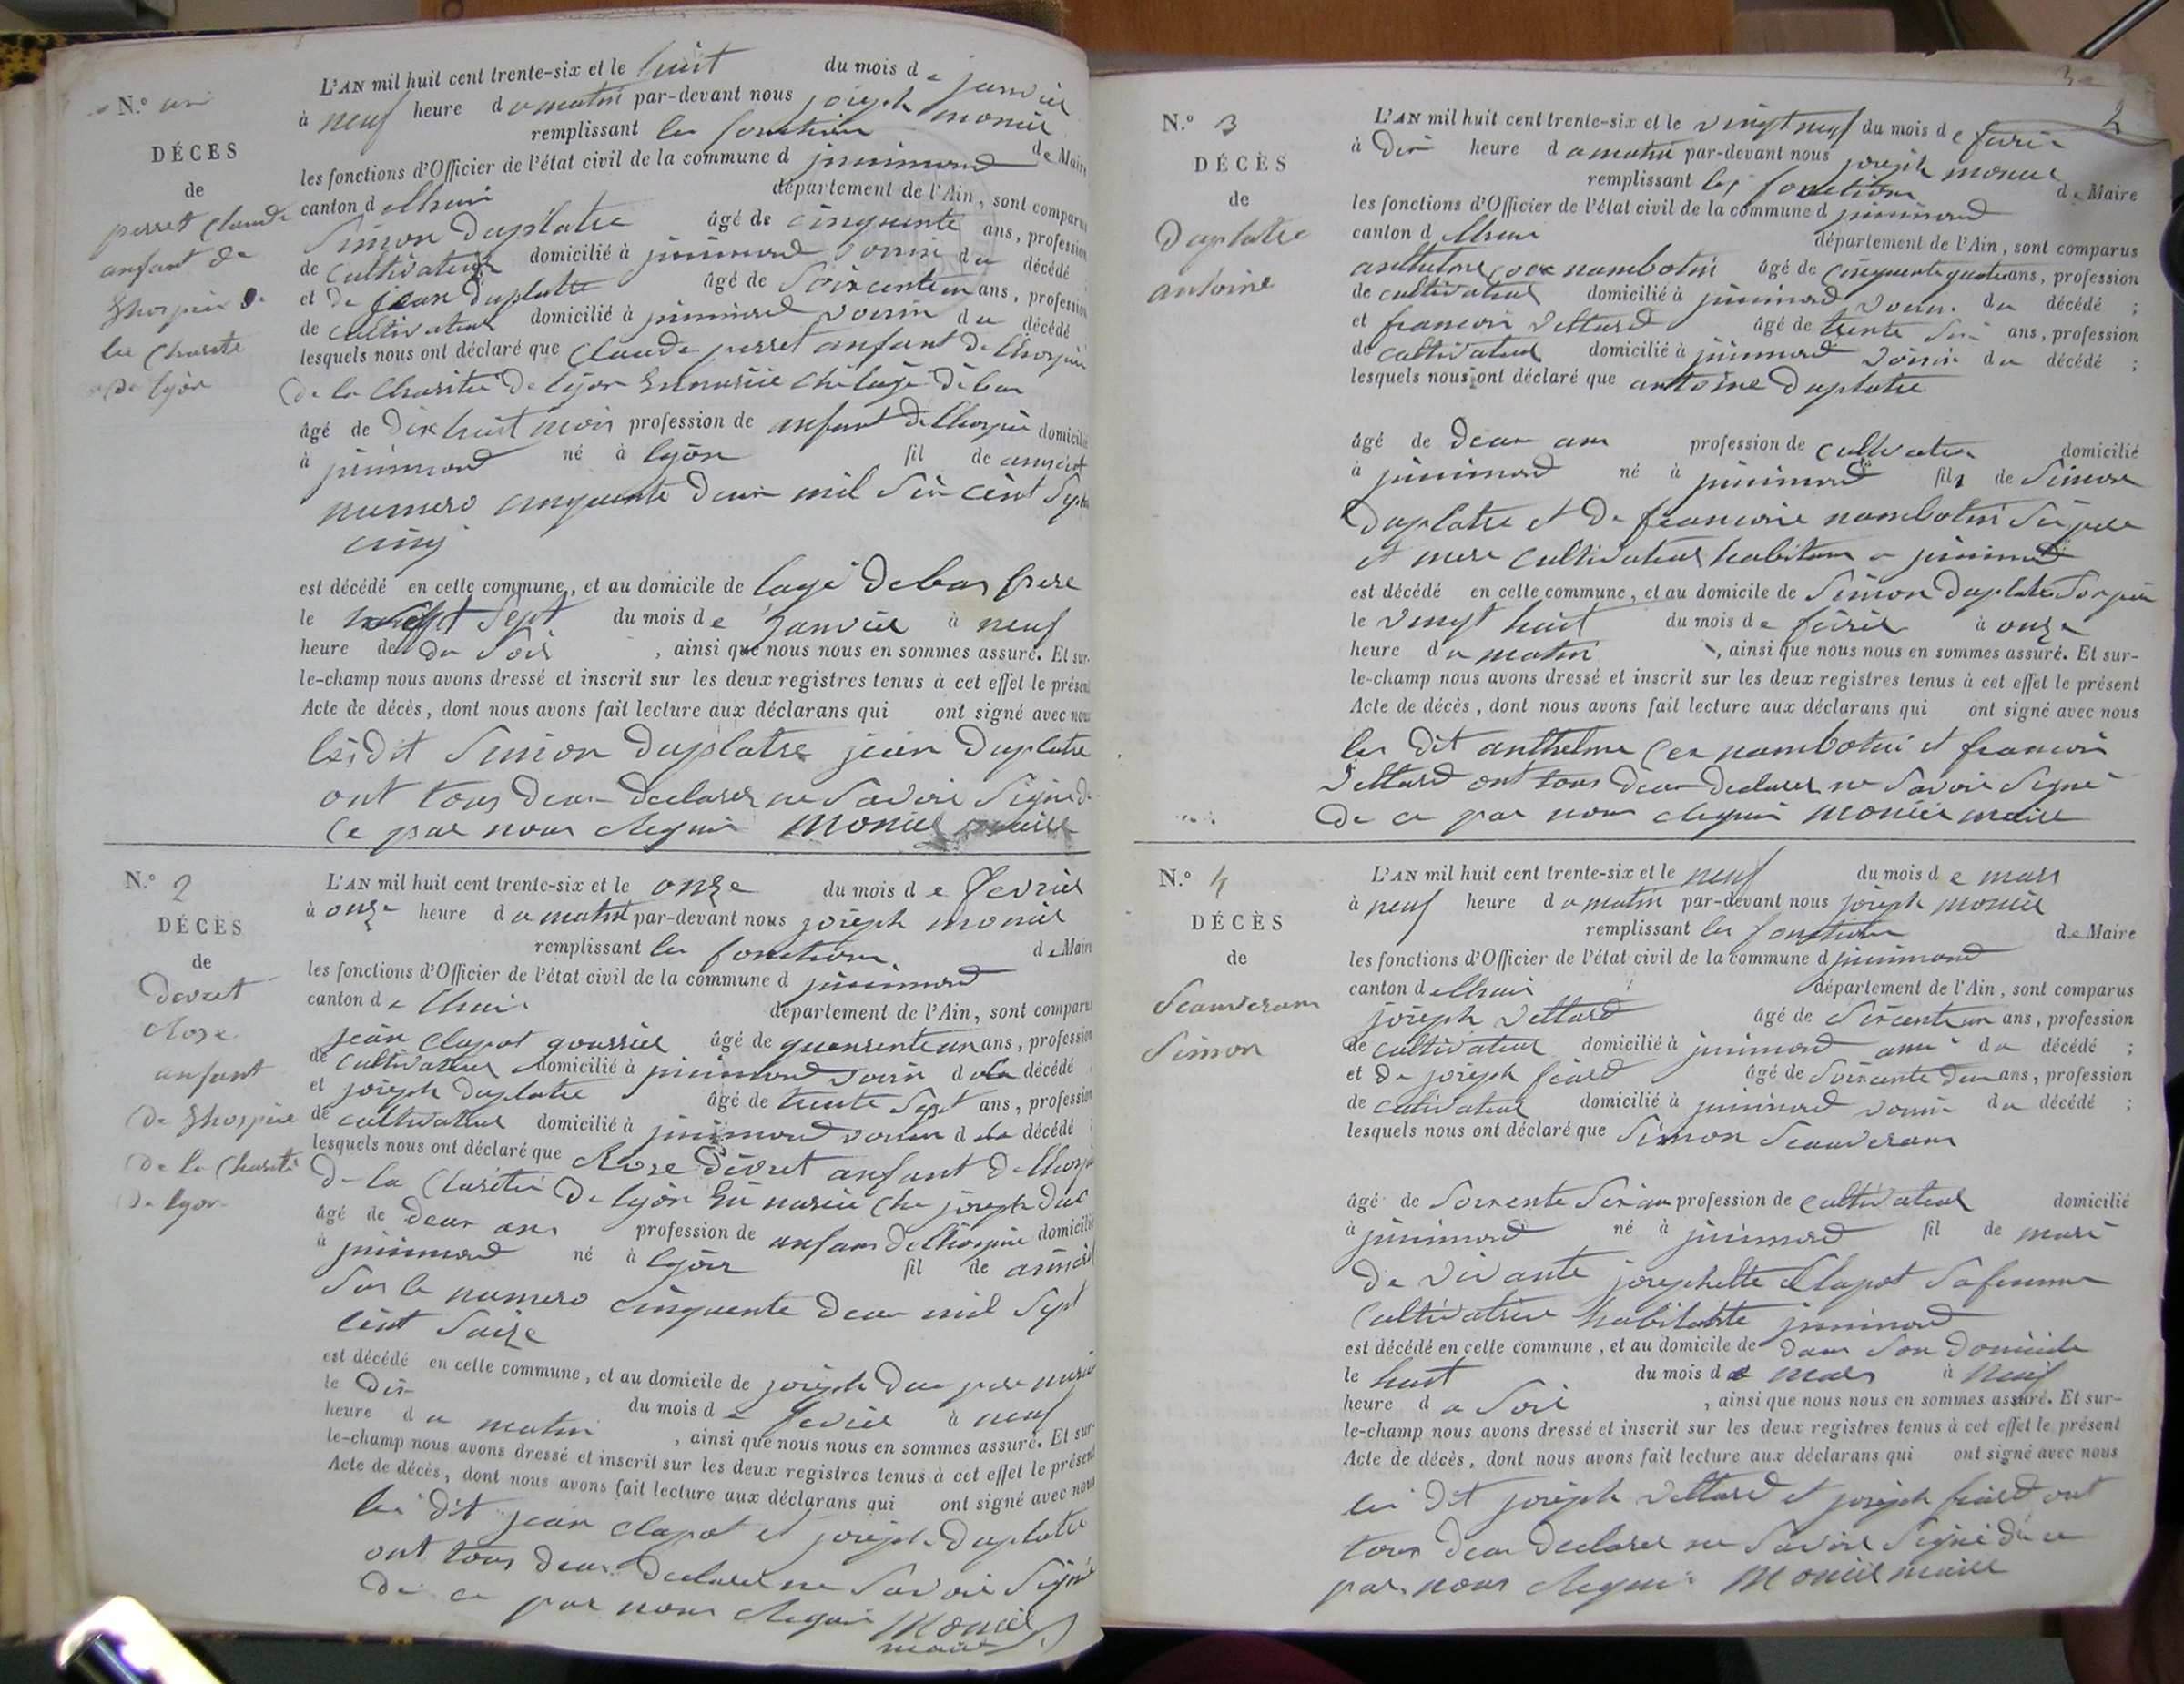 N.º un
DÉCES
de
perret Claude
anfant de
lhospice de
la Charite
de lyon
L'AN mil huit cent trente-six et le huit du mois de janvier
à neuf heure du matin par-devant nous joseph monier
remplissant les fonction de Maire
les fonctions d'Officier de l'état civil de la commune d jnnimond
canton d lhuis département de l'Ain, sont comparus
Simon Duplatre âgé de cinquante ans, profession
de cultivateur domicilié à jnnimond voisin du décédé
et de jean Duplatre âgé de Soixante un ans, profession
de cultivateur domicilié à jnnimond voisin du décédé
lesquels nous ont déclaré que Claude perret anfant de lhospice
de la Charité de lyon
âgé de Dix huit mois profession de anfant de lhospice domicilié
à jnnimond né à lyon fil de
numero cinquante deux mil Six cent
cinq
est décédé en cette commune, et au domicile de
le Sept du mois de janvier à neuf
heure de du Soir , ainsi que nous nous en sommes assuré. Et sur-
le-champ nous avons dressé et inscrit sur les deux registres tenus à cet effet le présent
Acte de décès, dont nous avons fait lecture aux déclarans qui ont signé avec nous
lesdit Simon Duplatre jean Duplatre
ont tous deux declarer ne Savoir Signé de
Ce par nous Requis Monier maire
N.º 2
DÉCÈS
de
devret
Rose
anfant
de lhospice
de la Charité
de lyon
L'AN mil huit cent trente-six et le onze du mois de fevrier
à onze heure du matin par-devant nous joseph monier
remplissant les fonctions de Maire
les fonctions d'Officier de l'état civil de la commune d jnnimond
canton de lhuis département de l'Ain, sont comparus
jean Clapot goussier âgé de quarante un ans, profession
de cultivateur domicilié à jnnimond voisin de la décédé
et joseph Duplatre âgé de trente Sept ans, profession
de cultivateur domicilié à jnnimond voisin de la décédé ;
lesquels nous ont déclaré que Rose Devret anfant de lhospice
de la Charité de lyon
âgé de Deux ans profession de anfans de lhospice domicilié
à jnnimond né à lyon fil de
Sur le numero cinquante deux mil Sept
cent Saize
est décédé en cette commune, et au domicile de joseph
le Dix du mois de fevrier à neuf
heure du matin , ainsi que nous nous en sommes assuré. Et sur-
le-champ nous avons dressé et inscrit sur les deux registres tenus à cet effet le présent
Acte de décès, dont nous avons fait lecture aux déclarans qui ont signé avec nous
les dit jean Clapot et joseph Duplatre
ont tous deux declarer ne Savoir Signé
de ce par nous Requis Monier
maire
2
N.º 3
DÉCÈS
de
Duplatre
antoine
L'AN mil huit cent trente-six et le vingt neuf du mois de
à Dix heure du matin par-devant nous joseph monier
remplissant les fonctions de Maire
les fonctions d'Officier de l'état civil de la commune d jnnimond
canton d lhuis département de l'Ain, sont comparus
anthelme nambotin âgé de cinquante quatre ans, profession
de cultivateur domicilié à jnnimond voisin du décédé ;
et francois Vettard âgé de trente Six ans, profession
de cultivateur domicilié à jnnimond voisin du décédé ;
lesquels nous ont déclaré que antoine Duplatre
âgé de deux ans profession de cultivateur domicilié
à jnnimond né à jnnimond fils de Simon
Duplatre et de francoise nambotin
et mere cultivateur habitans a jnnimond
est décédé en cette commune, et au domicile de Simon Duplatre Son père
le vingt huit du mois de à onze
heure du matin , ainsi que nous nous en sommes assuré. Et sur-
le-champ nous avons dressé et inscrit sur les deux registres tenus à cet effet le présent
Acte de décès, dont nous avons fait lecture aux déclarans qui ont signé avec nous
les dit anthelme nambotin et francois
Vettard ont tous deux declarer ne Savoir Signé
de ce par nous Requis monier maire
N.º 4
DÉCÈS
de
Seauveram
Simon
L'AN mil huit cent trente-six et le neuf du mois de mars
à neuf heure du matin par-devant nous joseph monier
remplissant les fonctions de Maire
les fonctions d'Officier de l'état civil de la commune d jnnimond
canton d lhuis département de l'Ain, sont comparus
joseph Vettard âgé de Soixante un ans, profession
de cultivateur domicilié à jnnimond ami du décédé ;
et de joseph âgé de Soixante deux ans, profession
de cultivateur domicilié à jnnimond voisin du décédé ;
lesquels nous ont déclaré que Simon Seauveram
âgé de Soixante Six ans profession de cultivateur domicilié
à jnnimond né à jnnimond fil de mari
de vivante josephette Clapot Sa femme
Cultivatrice habitante jnnimond
est décédé en cette commune, et au domicile de dans Son domicile
le huit du mois de mars à neuf
heure du Soir , ainsi que nous nous en sommes assuré. Et sur-
le-champ nous avons dressé et inscrit sur les deux registres tenus à cet effet le présent
Acte de décès, dont nous avons fait lecture aux déclarans qui ont signé avec nous
les dit joseph Vettard et joseph ont
tous deux declarer ne Savoir Signé de ce
par nous Requis Monier maire